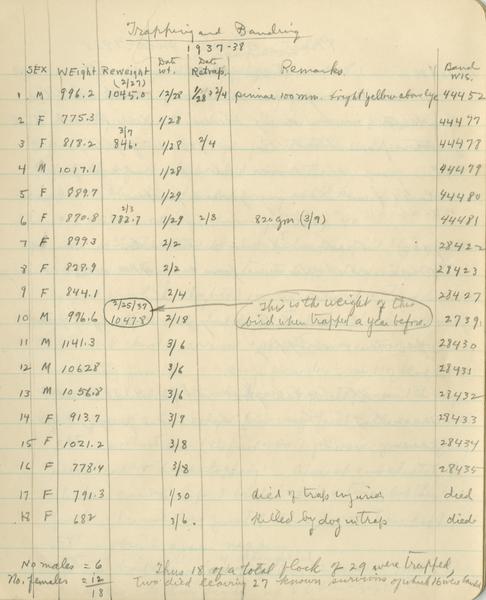 Trapping and Banding
1937-38
SEX WEIght REweight (2/27) Date wt. Date Retrap. Remarks Band WIS.
1 M 996.2 1045.0 12/28 1/28 2/4 pinnae 100 mm. bright yellow above eye 44452
2 F 775.3 1/28 44477
3 F 818.2 3/7 846. 1/28 2/4 44478
4 M 1017.1 1/28 44479
5 F 889.7 1/29 44480
6 F 870.8 2/3 782.7 1/29 2/3 820 gm (3/9) 44481
7 F 899.3 2/2 28422
8 F 828.9 2/2 28423
9 F 844.1 2/4 28427
10 M 996.6 2/25/37 1047.8 2/18 This is the weight of this bird when trapped a year before. 2739
11 M 1141.3 3/6 28430
12 M 1062.8 3/6 28431
13 M 1056.8 3/6 28432
14 F 913.7 3/7 28433
15 F 1021.2 3/8 28434
16 F 778.4 3/8 28435
17 F 791.3 1/30 died of trap injuries died
18 F 682 3/6. killed by dog in trap died
No males = 6 Thus 18 of a total flock of 29 were trapped,
No. females = 12 Two died leaving 27 known survivors of which 16 were banded
18